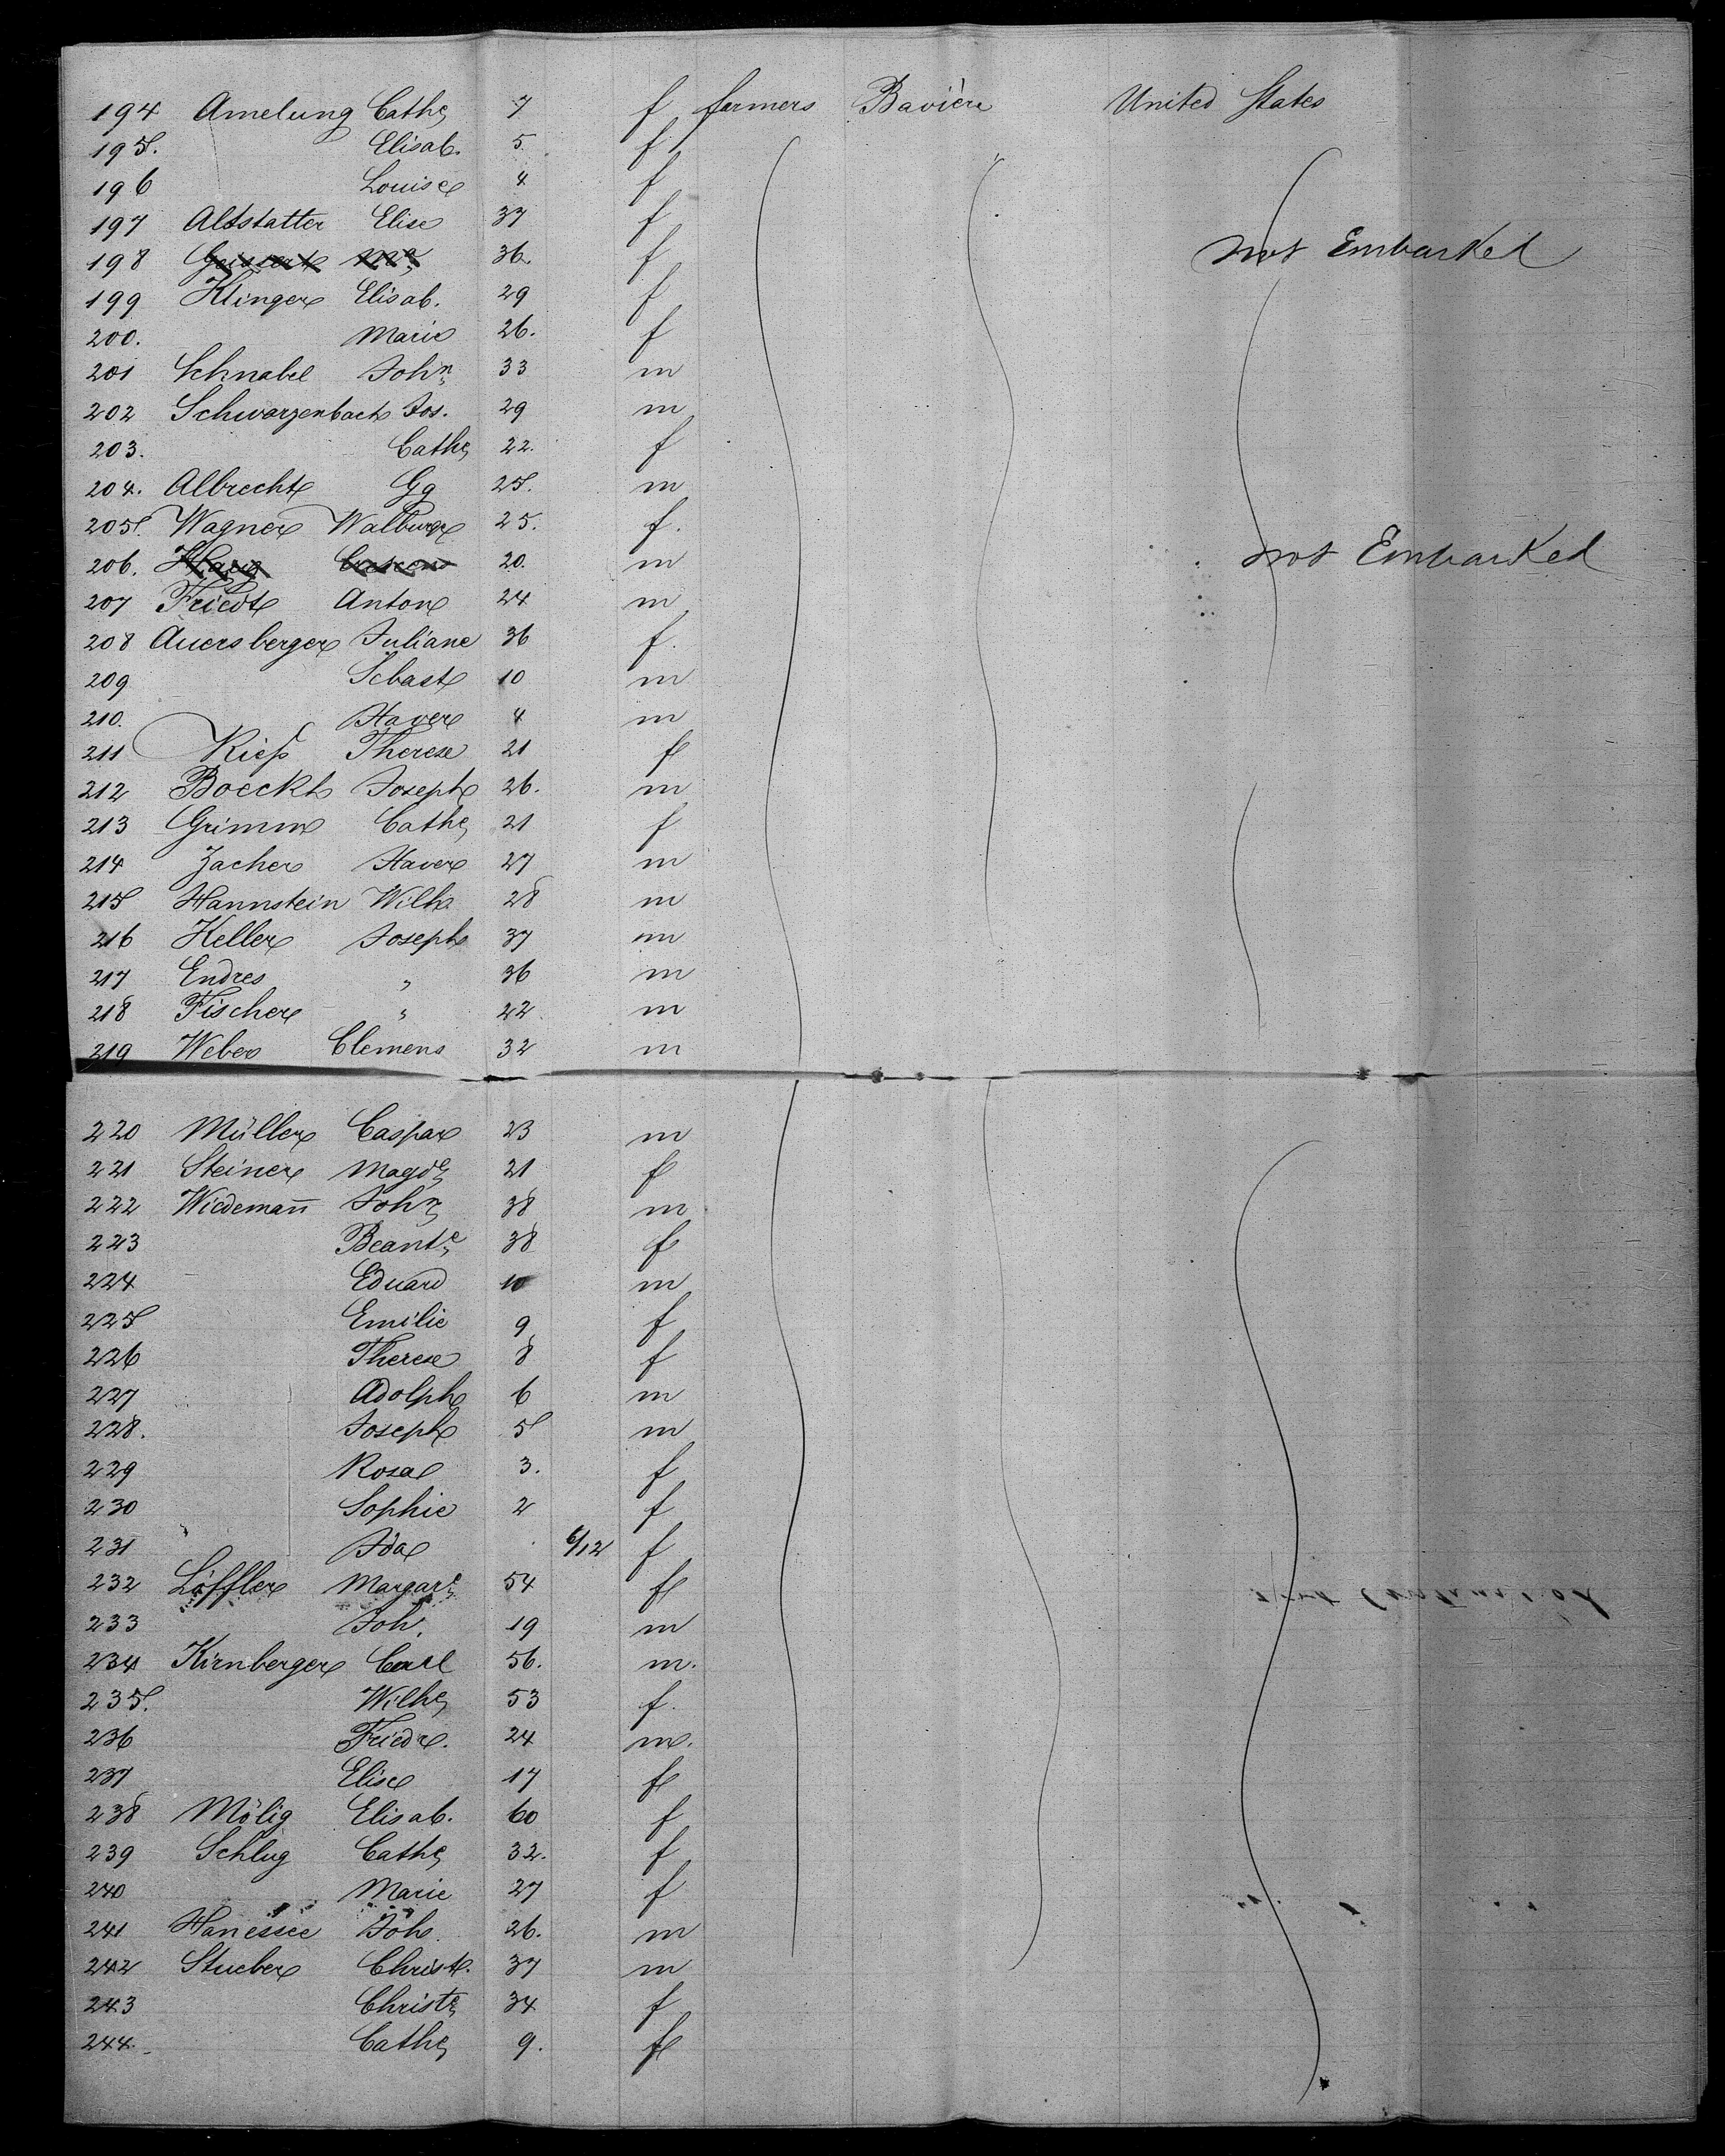 194 Amelung Cathe 7 f farmers Bavière United States
195. Elisab. 5. f
196 Louise 4 f
197 Altstatter Elise 37 f
198 36. f not Embarked
199 Klinger Elisab. 29 f
200. Marie 26. f
201 Schnabel John 33 m
202 Schwarzenbach Jos. 29 m
203. Cathe 22. f
204. Albrecht Gg 25. m
205. Wagner Walburga 25. f.
206. 20. m not Embarked
207 Friedt Anton 24 m
208 Auersberger Juliane 36 f.
209 Sebast 10 m
210. Xaver 4 m
211 Kieß Therese 21 f
212 Boeckh Joseph 26. m
213 Grimm Cathe 21 f
214 Zacher Xaver 27 m
215 Hannstein Wilh 28 m
216 Keller Joseph 37 m
217 Endres " 36 m
218 Fischer " 22. m
219 Weber Clemens 32 m
220 Müller Caspar 23 m
221 Steiner Magde 21 f
222 Wiedemañ John 38 m
223 Beante 38 f
224 Eduard 10 m
225 Emilie 9 f
226 Therese 8 f
227 Adolph 6 m
228. Joseph 5 m
229 Rosa 3. f
230 Sophie 2 f
231 Ida 6/12 f
232 Löffler Margare 54 f
233 Joh. 19 m
234 Kirnberger Carl 56. m.
235. Wilhe 53 f.
236 Friedr. 24 m.
237 Elise 17 f
238 Mölig Elisab. 60 f
239 Schlug Cathe 32. f
240 Marie 27 f
241 Hanessee Joh. 26. m
242 Stueber Christ. 37 m
243 Christe 34 f
244. Cathe 9. f